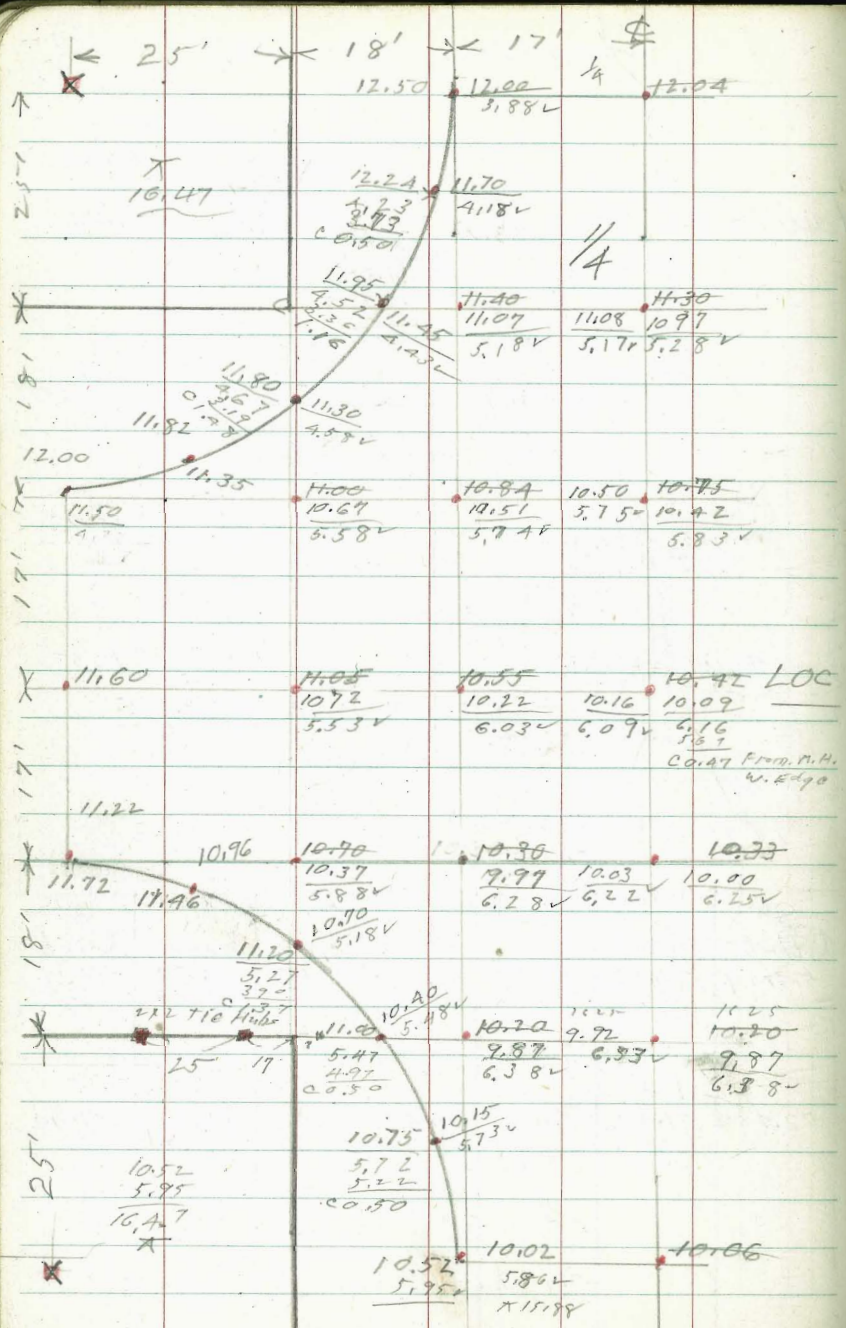 25' 18' 17' ℄
12.50 12.00 1/4 12.04
3.88✓
25'
⊼
16.47
12.24 11.70
4.23 4.18✓
3.73
C 0.50
1/4
11.95 11.40 11.30
4.52 11.45 11.07 11.08 10 97
4.43✓ 5.18✓ 5.17✓ 5.28✓
1.16
18'
11.80
4.67 11.30
3.19 4.58✓
C 1.48
11.82
12.00 11.35
11.50 11.00 10.84 10.50 10.75
4 10.67 10.51 5.75✓ 10.42
5.58✓ 5.74✓ 5.83✓
17'
11.60 11.05 10.55 10.42 LOC
10 72 10.22 10.16 10.09
5.53✓ 6.03✓ 6.09✓ 6.16
5.69
C 0.47 From M.H.
W. Edge
17'
11.22
10.96 10.70 10.30 10.33
11.72 11.46 10.37 9.97 10.03 10.00
5.88✓ 6.28✓ 6.22✓ 6.25✓
18'
10.70
11.20 5.18✓
5.27
3.90
C 1.37
2x2 Tie Hubs 10.40
5.48✓
25' 17' 11.00 10.20 9.92 10.20
5.47 9.87 6.33✓ 9.87
4.97 6.38✓ 6.38✓
C 0.50
10.15
10.75 5.73✓
5.72
5.22
C 0.50
25'
10.52
5.95
16.47
⊼
10.52 10.02 10.06
5.95✓ 5.86✓
⊼ 15.88